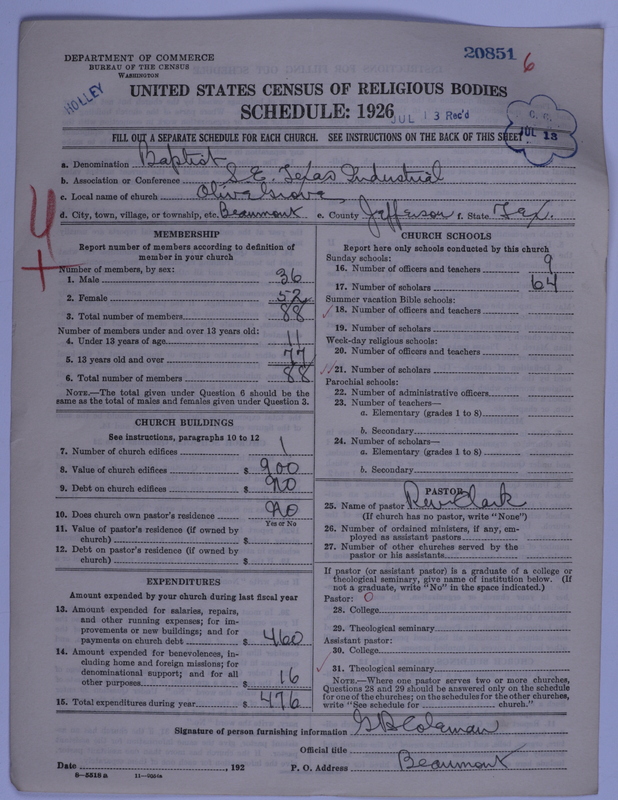 DEPARTMENT OF COMMERCE
BUREAU OF THE CENSUS
WASHINGTON
208516
HOLLEY
UNITED STATES CENSUS OF RELIGIOUS BODIES
SCHEDULE: 1926
JUL 13 Rec'd
JUL 13
FILL OUT A SEPARATE SCHEDULE FOR EACH CHURCH. SEE INSTRUCTIONS ON THE BACK OF THIS SHEET
a. Denomination Baptist
b. Association or Conference S.E. Texas Industrial
c. Local name of church Olivegrove
d. City, town, village, or township, etc. Beaumont e. County Jefferson f. State Tex.
4
+
MEMBERSHIP
Report number of members according to definition of
member in your church
Number of members, by sex:
1. Male 36
2. Female 52
3. Total number of members 88
Number of members under and over 13 years old:
4. Under 13 years of age 11
5. 13 years old and over 77
6. Total number of members 88
NOTE.—The total given under Question 6 should be the
same as the total of males and females given under Question 3.
CHURCH BUILDINGS
See instructions, paragraphs 10 to 12
7. Number of church edifices 1
8. Value of church edifices $ 900
9. Debt on church edifices $ no
10. Does church own pastor's residence no
Yes or No
11. Value of pastor's residence (if owned by
church) $
12. Debt on pastor's residence (if owned by
church) $
EXPENDITURES
Amount expended by your church during last fiscal year
13. Amount expended for salaries, repairs,
and other running expenses; for im-
provements or new buildings; and for
payments on church debt $ 460
14. Amount expended for benevolences, in-
cluding home and foreign missions; for
denominational support; and for all
other purposes $ 16
15. Total expenditures during year $ 476
CHURCH SCHOOLS
Report here only schools conducted by this church
Sunday schools:
16. Number of officers and teachers 9
17. Number of scholars 64
Summer vacation Bible schools:
18. Number of officers and teachers
19. Number of scholars
Week-day religious schools:
20. Number of officers and teachers
21. Number of scholars
Parochial schools:
22. Number of administrative officers
23. Number of teachers—
a. Elementary (grades 1 to 8)
b. Secondary
24. Number of scholars—
a. Elementary (grades 1 to 8)
b. Secondary
PASTOR
25. Name of pastor Rev. Clark
(If church has no pastor, write "None")
26. Number of ordained ministers, if any, em-
ployed as assistant pastors
27. Number of other churches served by the
pastor or his assistants
If pastor (or assistant pastor) is a graduate of a college or
theological seminary, give name of institution below. (If
not a graduate, write "No" in the space indicated.)
Pastor: 0
28. College
29. Theological seminary
Assistant pastor:
30. College
31. Theological seminary
NOTE.—Where one pastor serves two or more churches,
Questions 28 and 29 should be answered only on the schedule
for one of the churches; on the schedules for the other churches,
write "See schedule for church."
Signature of person furnishing information G B Coleman
Official title
Date , 192 P. O. Address Beaumont
8—5518 a